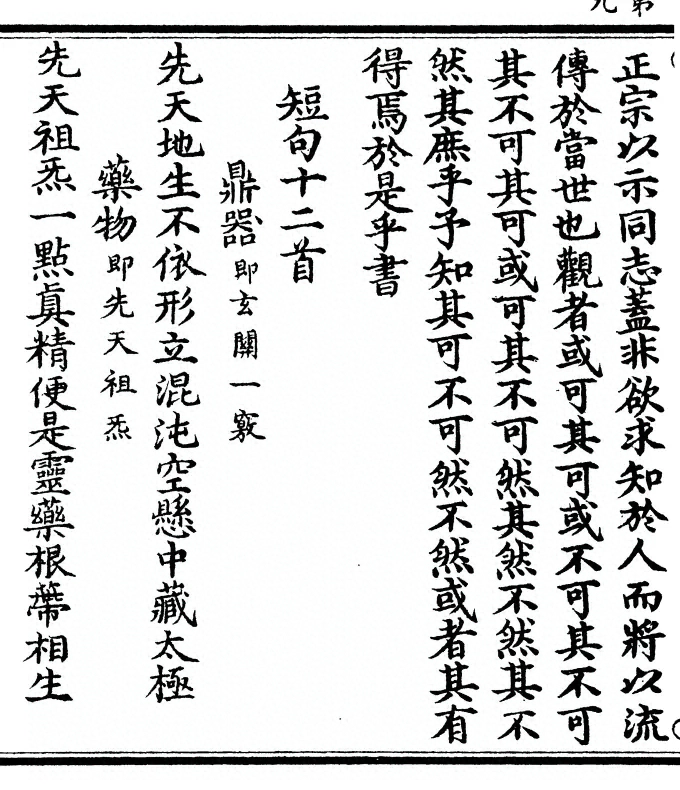 正宗以示同志蓋非欲求知於人而將以流
傳於當世也觀者或可其可或不可其不可
其不可其可或可其不可然其然不然其不
然其庶乎予知其可不可然不然或者其有
得焉於是乎書
短句十二首
鼎器即玄關一竅
先天地生不依形立混沌空懸中藏太極
藥物即先天祖炁
先天祖炁一點眞精便是靈藥根蔕相生